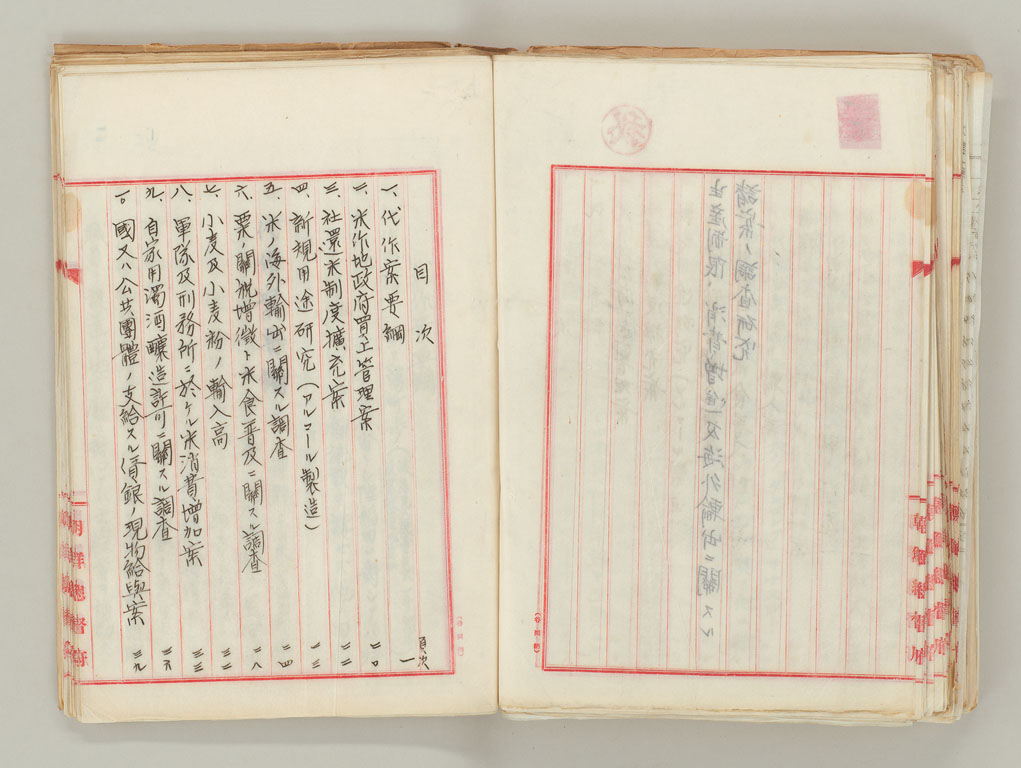 生産制限、消費增進及海外輸出ニ關スル
諸案ノ調査研究
目次
頁次
一、代作案要綱 一
二、米作地政府買上管理案
三、社還米制度擴充案
四、新規用途研究(アルコール製造) 一三
五、米ノ海外輸出ニ關スル調査 二四
六、粟ノ關稅增徵ト米食普及ニ關スル調査 二八
七、小麦及小麦粉ノ輸入高 三二
八、軍隊及刑務所ニ於ケル米消費增加案 三三
九、自家用濁酒釀造許可ニ關スル調査 三六
一〇、國又ハ公共團體ノ支給スル賃銀ノ現物給與案 三九
朝鮮總督府